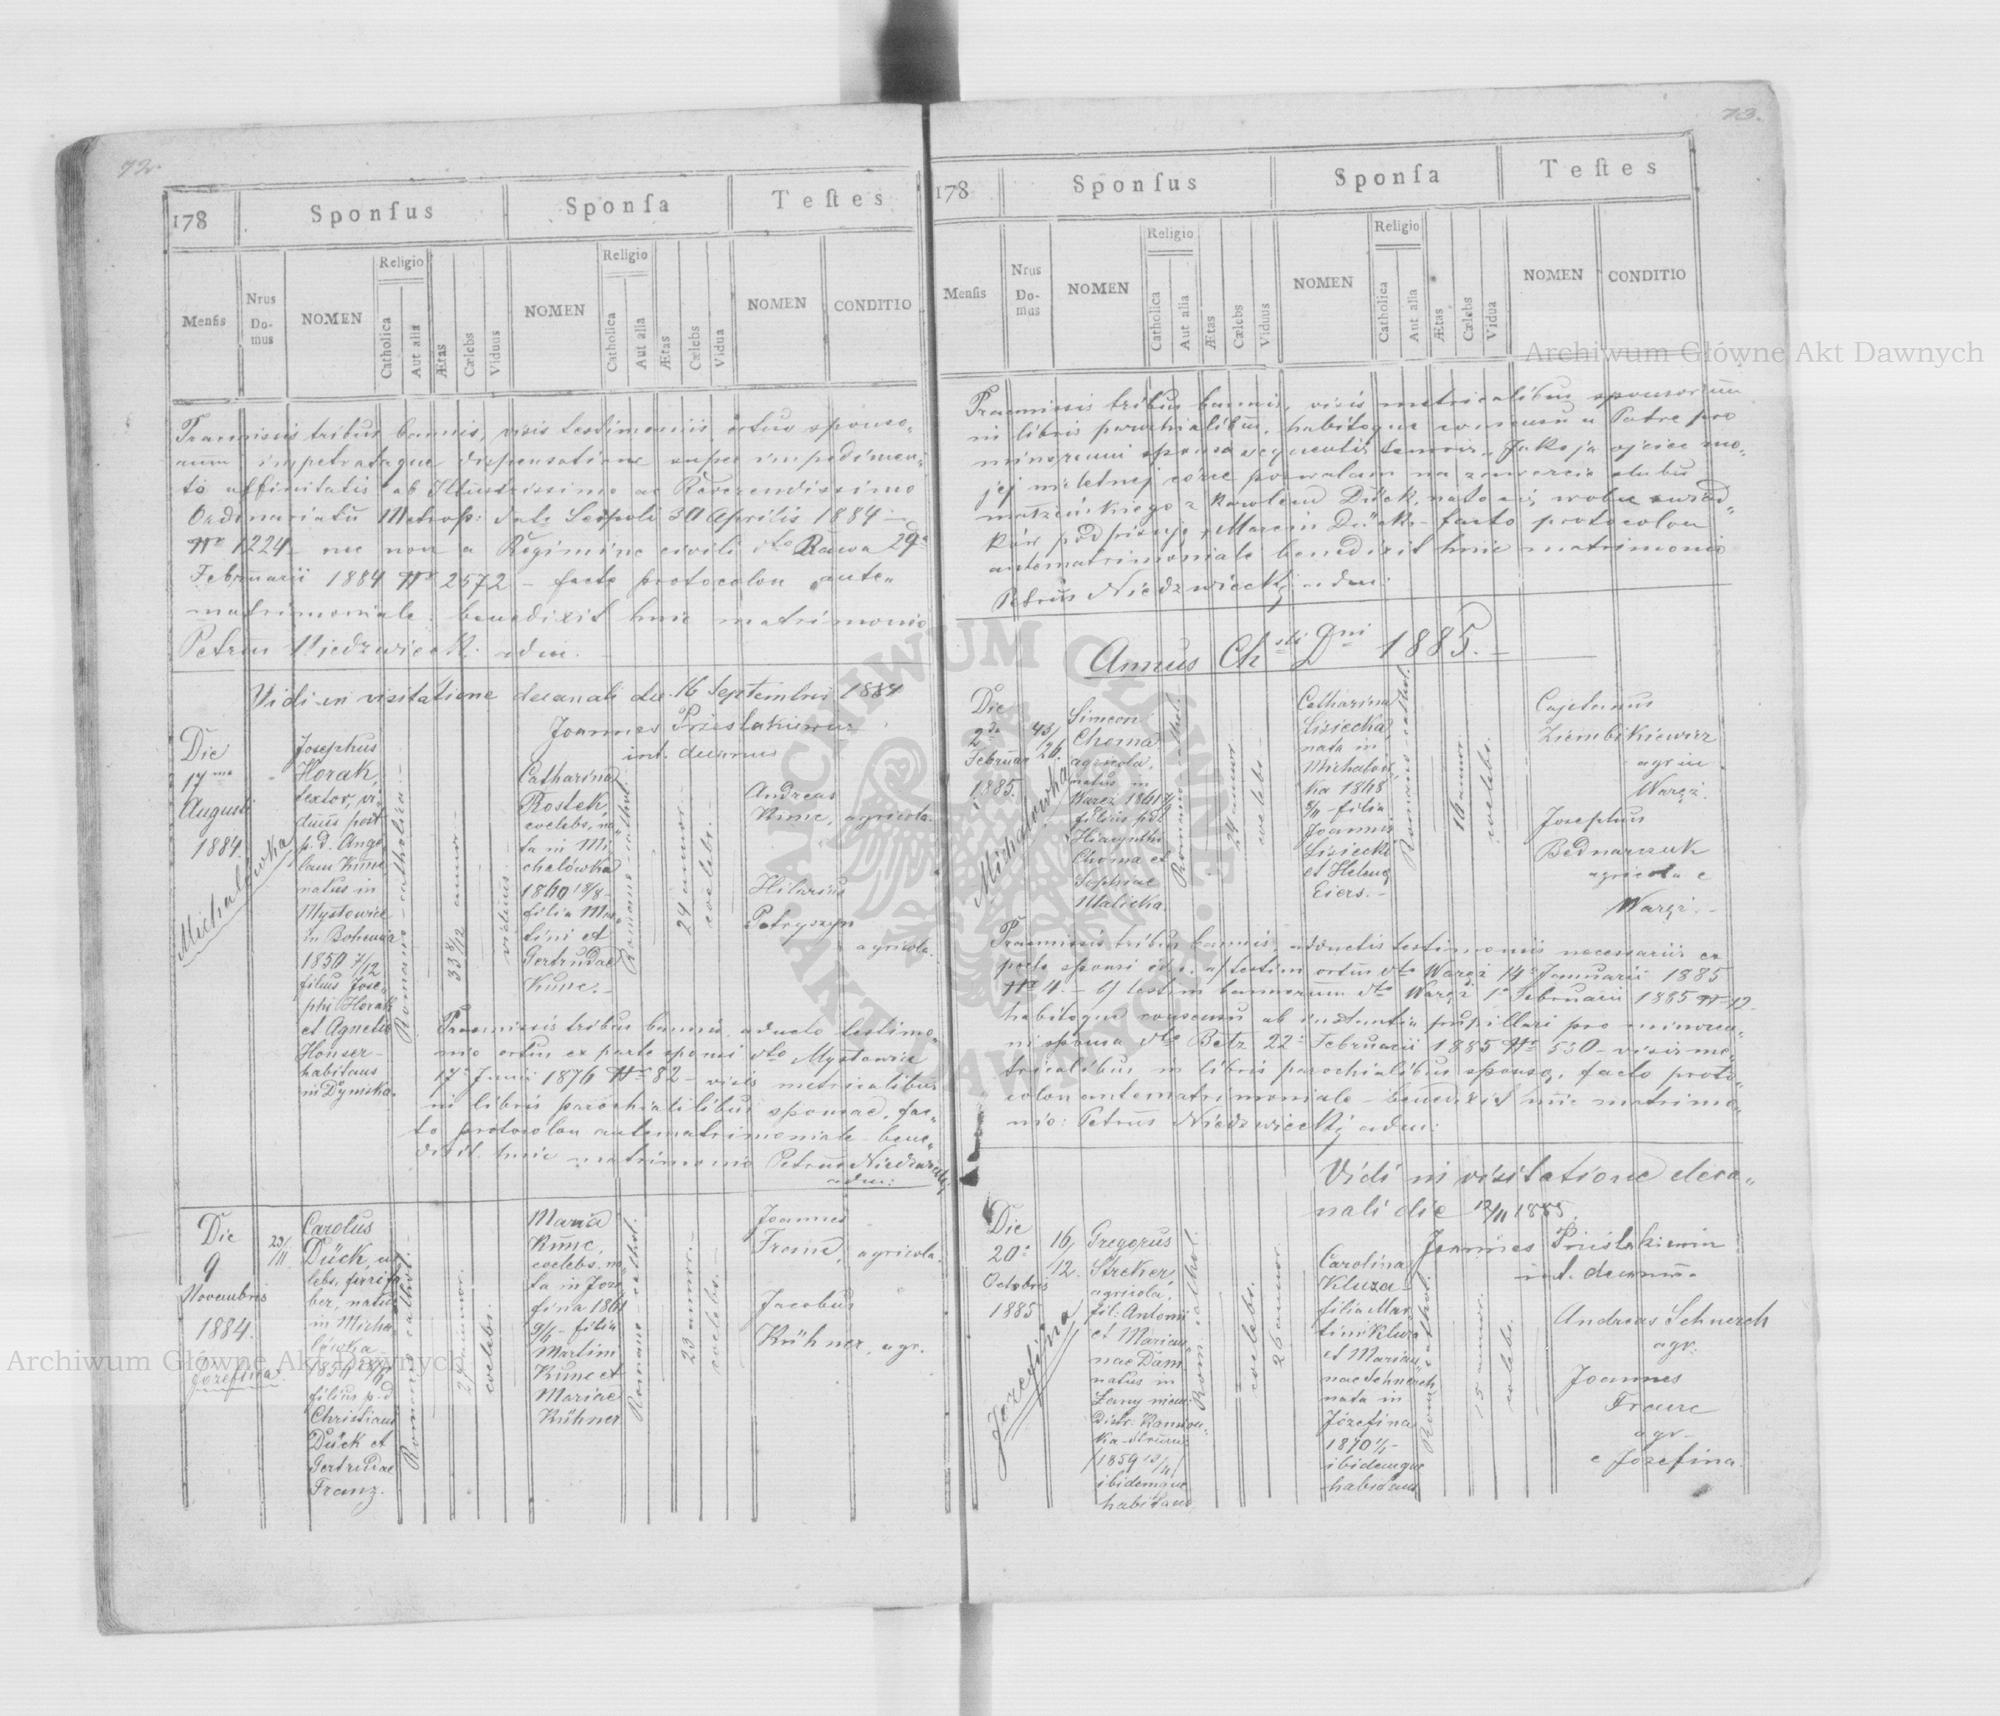 72.
178
Sponsus
Sponsa
Testes
Mensis
Nrus Domus
NOMEN
Religio
Catholica
Aut alia
Ætas
Cælebs
Viduus
NOMEN
Religio
Catholica
Aut alia
Ætas
Cælebs
Vidua
NOMEN
CONDITIO
Praemissis tribus bannis, visis testimoniis ortus sponso-
rum impetrataque dispensatione super impedimen-
to affinitatis ab Illustrissimo ac Reverendissimo
Ordinariatu Metrop: dato Leopoli 30 Aprilis 1884
Nro 1224 nec non a Regimine civili dto Rawa 29a
Februarii 1884 Nro 2572 - facto protocolon ante-
matrimoniale benedixit huic matrimonio
Petrus Niedzwiecki adm.
Vidi in visitatione decanali die 16 Septembris 1884
Joannes
int. decanus
Die
17ma
Augusti
1884.
Michalówka
Josephus
Horak,
textor, vi-
duus post
p. d. Ange-
lam Kunc
natus in
Mystowice
in Bohemia
1850 7/12
filius Jose-
phi Horak
et Agnetis
Honser
habitans
in Dyniska.
Romano-catholica
33 8/12 annor
viduus
Catharina
Rostek,
coelebs, na-
ta in Mi-
chalówka
1860 18/8
filia Mar-
tini et
Gertrudae
Kunc.
Romano cathol.
24 annor.
coelebs.
Andreas
Kunc, agricola.
Hilarius
Petryszyn
agricola.
Praemissis tribus bannis, aducto testimo-
nio ortus ex parte sponsi dto Mystowice
17 Junii 1876 Nro 82 - visis metricalibus
in libris parochialibus sponsae, fac-
to protocolon antematrimoniale bene-
dixit huic matrimonio Petrus Niedzwiecki
adm:
Die
9
Novembris
1884.
Józefina.
23/11.
Carolus
Dück, co-
lebs, ferrifa-
ber, natus
in Micha-
lówka
filius p. d.
Christiani
Dück et
Gertrudae
Franz.
Romano cathol.
coelebs.
Maria
Kunc,
coelebs, na-
ta in Joze-
fina 1861
9/6 - filia
Martini
Kunc et
Mariae
Kühner
Romano-cathol.
23 annor.
coelebs.
Joannes
agricola.
Jacobus
Kühner, agr.
73.
178
Sponsus
Sponsa
Testes
Mensis
Nrus Domus
NOMEN
Religio
Catholica
Aut alia
Ætas
Cælebs
Viduus
NOMEN
Religio
Catholica
Aut alia
Ætas
Cælebs
Vidua
NOMEN
CONDITIO
Praemissis tribus bannis, visis metricalibus sponsorum
in libris parochialibus, habitoque consensu a Patre pro
minorenni sponsa sequentis tenoris "Jako ja ojciec mo-
jej nieletniej córce pozwalam na zawarcie ślubu
małżeńskiego z Karolem Dück, na to aj, wobec świad-
ków podpisuję Marcin Dück - facto protocolon
antematrimoniale benedixit huic matrimonio
Petrus Niedzwiecki adm:
Annus Chsti Dni 1885.
Die
2da
Februar
1885.
Michalówka
43/26.
Simeon
Choma
agricola,
natus in
Waręż
filius p. d.
Hiacynthi
Choma et
Sophiae
Malicka.
Romano-cathol.
24 annor
coelebs
Catharina
Lisiecka,
nata in
Michalów-
ka 1868
8/11 - filia
Joannis
Lisiecki
et Helenae
Eiers.
Romano-cathol.
16 annor.
coelebs.
Cajetanus
Ziembikiewicz
agr in
Waręż.
Josephus
Bednarczuk
agricola e
Waręż.
Praemissis tribus bannis, aductis testimoniis necessariis ex
parte sponsi id e. a/ testim ortus dto Waręż 14 Januarii 1885
Nro 4. - b/ testim bannorum dto Waręż 1 Februarii 1885 Nro 12
habitoque consensu ab instantia pupillari pro minoren-
ni sponsa dto Bełz 22 Februarii 1885 Nro 530 - visis me-
tricalibus in libris parochialibus sponsae, facto proto-
colon antematrimoniale benedixit huic matrimo-
nio: Petrus Niedzwiecki adm:
Vidi in visitatione deca-
nali die 12/11 1885.
Joannes
int. decanus.
Die
20a
Octobris
1885
Józefina
16/12.
Gregorius
Streker,
agricola,
fil: Antonii
et Marian-
nae Dam
natus in
Distr. Kamion-
ka strum:
/1859 13/11/
ibidemque
habitans
Rom cathol.
coelebs.
26 annor.
Carolina
Kluza
filia Mar-
tini Kluza
et Marian-
nae Schnerch
nata in
Józefina
1870 1/1
ibidemque
habitans
Rom cathol.
15 annor.
coelebs.
Andreas Schnerch
agr.
Joannes
Franz
agr
e Józefina.
Archiwum Główne Akt Dawnych
Archiwum Główne Akt Dawnych
ARCHIWUM GŁÓWNE AKT DAWNYCH